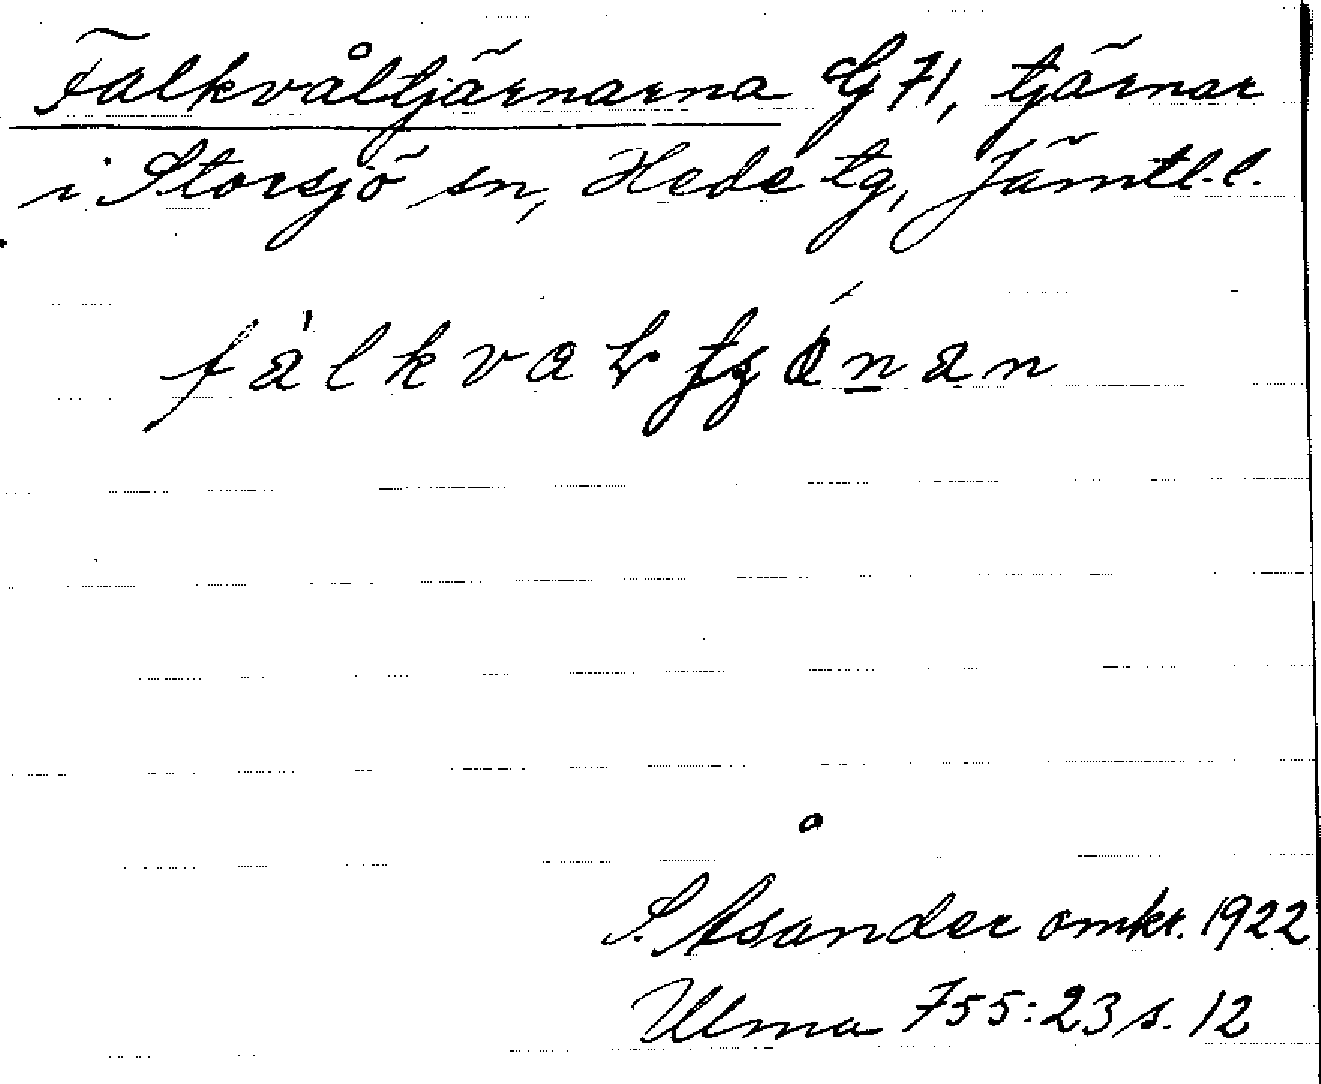 Falkvåltjärnarna G 71, tjärnar
i Storsjö sn, Hede tg, Jämtl. l.
S. Åsander omkr. 1922
Ulma 755:23 s. 12